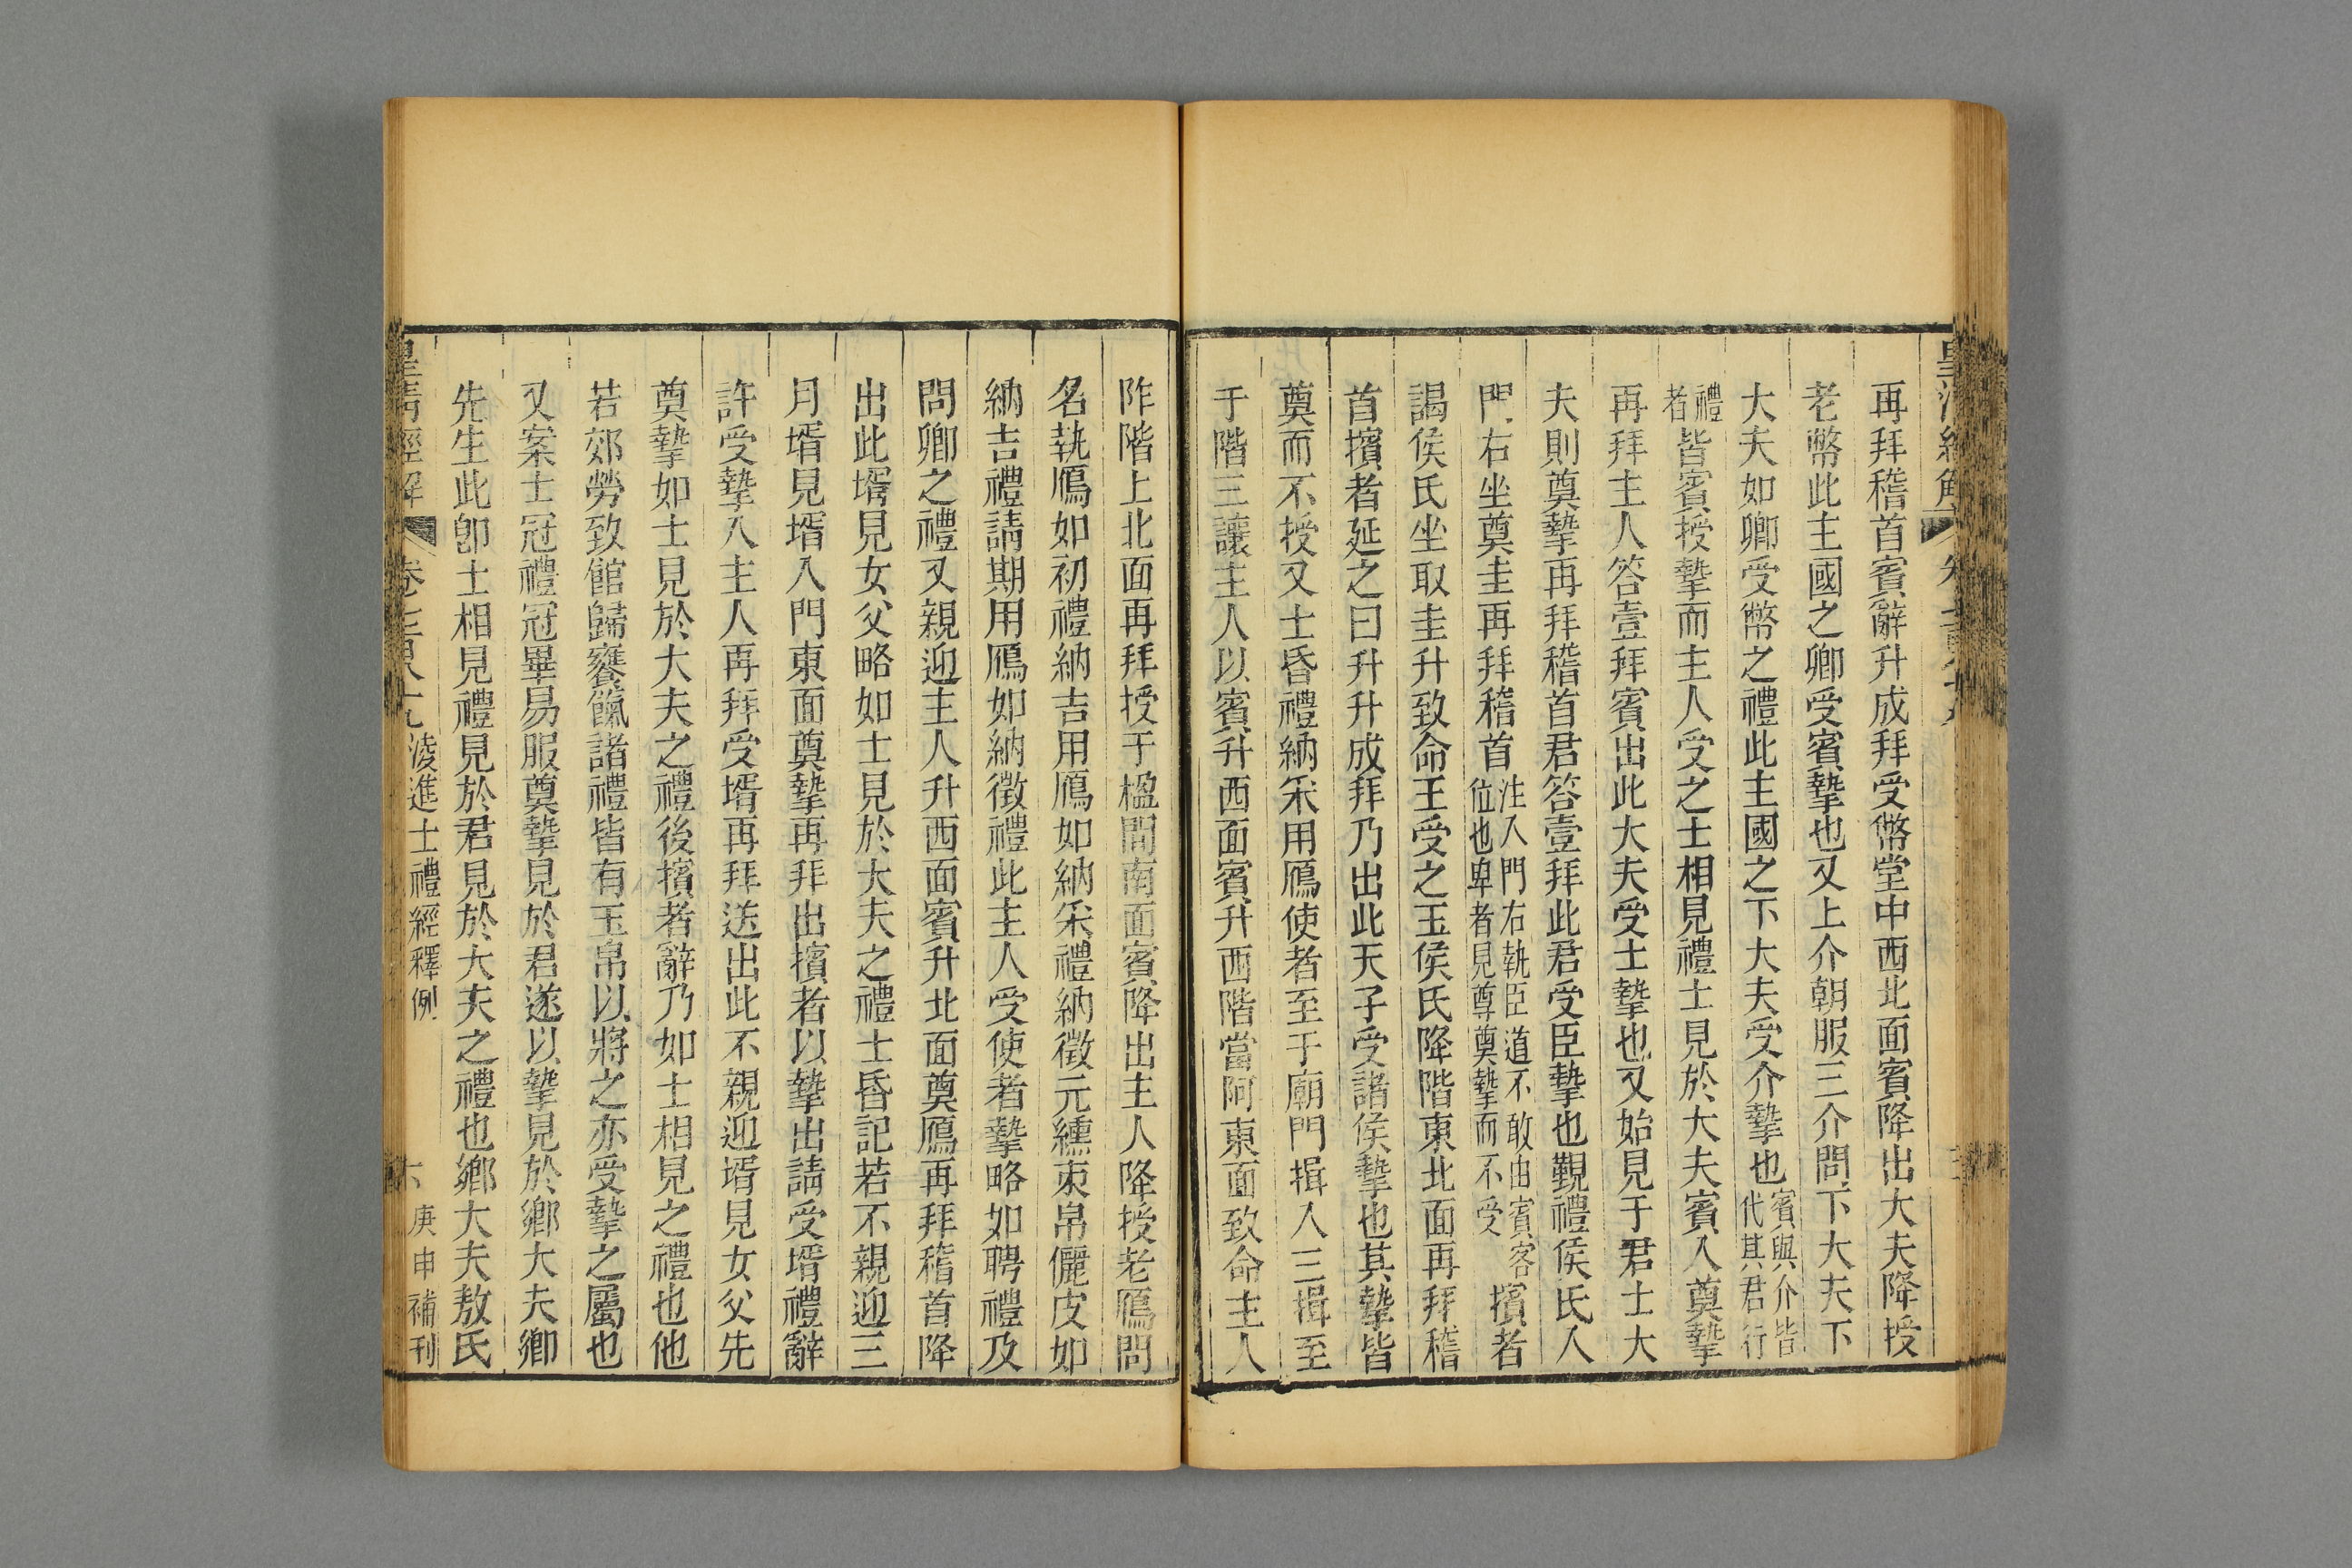 皇清經解
再拜稽首賓辭升成拜受幣堂中西北面賓降出大夫降授
老幣此主國之卿受賓摯也又上介朝服三介問下大夫下
大夫如卿受幣之禮此主國之下大夫受介摯也賓與介皆代其君行
禮者皆賓授摯而主人受之士相見禮士見於大夫賓入奠摯
再拜主人答壹拜賓出此大夫受士摯也又始見于君士大
夫則奠摯再拜稽首君答壹拜此君受臣摯也覲禮侯氏入
門右坐奠圭再拜稽首注入門右執臣道不敢由賓客位也卑者見尊奠摯而不受擯者
謁侯氏坐取圭升致命王受之玉侯氏降階東北面再拜稽
首擯者延之曰升升成拜乃出此天子受諸侯摯也其摯皆
奠而不授又士昏禮納采用鴈使者至于廟門揖入三揖至
于階三讓主人以賓升西面賓升西階當阿東面致命主人
阼階上北面再拜授于楹間南面賓降出主人降授老鴈問
名執鴈如初禮納吉用鴈如納采禮納徵元纁束帛儷皮如
納吉禮請期用鴈如納徵禮此主人受使者摯略如聘禮及
問卿之禮又親迎主人升西面賓升北面奠鴈再拜稽首降
出此壻見女父略如士見於大夫之禮士昏記若不親迎三
月壻見壻入門東面奠摯再拜出擯者以摯出請受壻禮辭
許受摯入主人再拜受壻再拜送出此不親迎壻見女父先
奠摯如士見於大夫之禮後擯者辭乃如士相見之禮也他
若郊勞致館歸饔餼諸禮皆有玉帛以將之亦受摯之屬也
又案士冠禮冠畢易服奠摯見於君遂以摯見於鄉大夫鄉
先生此卽士相見禮見於君見於大夫之禮也鄉大夫敖氏
皇清經解 卷七百八十九 淩進士禮經釋例 六 庚申補刊